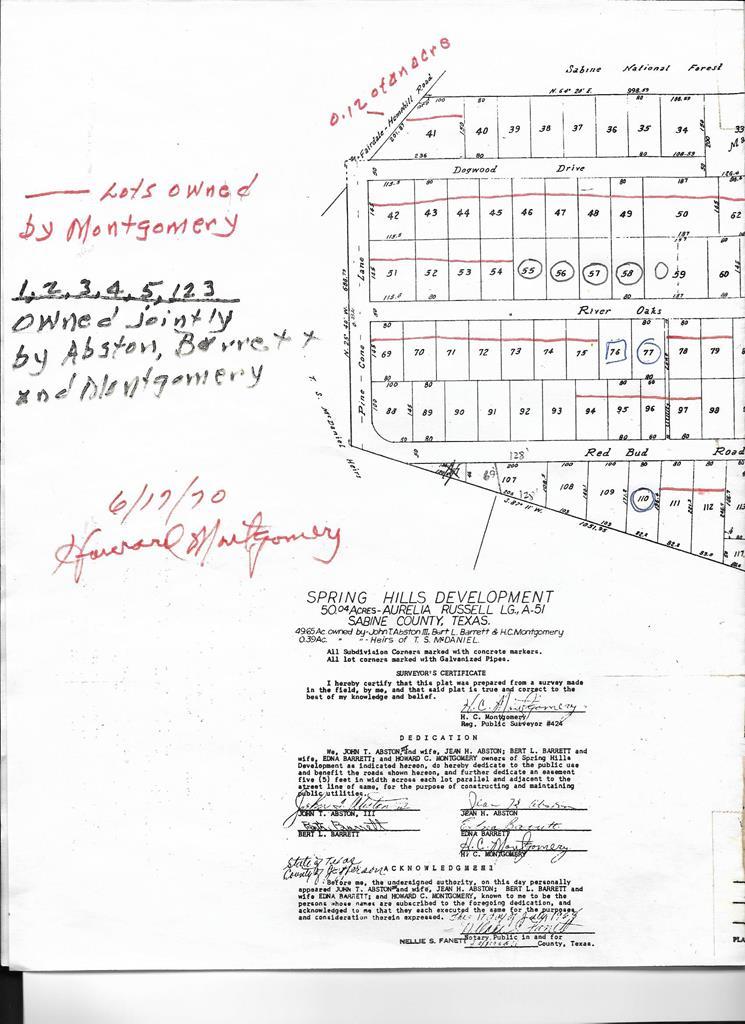 0.12 of an acre
Sabine National Forest
N. 64° 20' E. 998.59
Fairdale-Hemphill Road
100 80 188.59
41 40 39 38 37 36 35 34 33
236 80 108.59 200
Dogwood Drive
— Lots owned
by Montgomery
115.5 80 80 187
42 43 44 45 46 47 48 49 50 62
115.5 187
51 52 53 54 55 56 57 58 59 60
115.5 80 80 187
1, 2, 3, 4, 5, 123
owned jointly
by Abston, Barrett
and Montgomery
River Oaks
Pine Cone Lane
80 80
69 70 71 72 73 74 75 76 77 78 79
100 80 80 60 80
88 89 90 91 92 93 94 95 96 97 98
T. S. McDaniel Heirs
Red Bud Road
128'
69'
107 108 109 110 111 112
128'
6/17/70
Howard Montgomery
SPRING HILLS DEVELOPMENT
50.04 ACRES-AURELIA RUSSELL LG., A-51
SABINE COUNTY, TEXAS.
49.65 Ac. owned by-John T. Abston III, Burt L. Barrett & H.C. Montgomery
0.39 Ac. " "-Heirs of T. S. McDANIEL.
All Subdivision Corners marked with concrete markers.
All lot corners marked with Galvanized Pipes.
SURVEYOR'S CERTIFICATE
I hereby certify that this plat was prepared from a survey made
in the field, by me, and that said plat is true and correct to the
best of my knowledge and belief.
H. C. Montgomery
H. C. Montgomery
Reg. Public Surveyor #424
DEDICATION
We, JOHN T. ABSTON, and wife, JEAN H. ABSTON; BERT L. BARRETT and
wife, EDNA BARRETT; and HOWARD C. MONTGOMERY owners of Spring Hills
Development as indicated hereon, do hereby dedicate to the public use
and benefit the roads shown hereon, and further dedicate an easement
five (5) feet in width across each lot parallel and adjacent to the
street line of same, for the purpose of constructing and maintaining
public utilities.
JOHN T. ABSTON, III JEAN H. ABSTON
BERT L. BARRETT EDNA BARRETT
H. C. Montgomery
H. C. MONTGOMERY
State of Texas
County of Jefferson ACKNOWLEDGMENT
Before me, the undersigned authority, on this day personally
appeared JOHN T. ABSTON and wife, JEAN H. ABSTON; BERT L. BARRETT and
wife EDNA BARRETT; and HOWARD C. MONTGOMERY, known to me to be the
persons whose names are subscribed to the foregoing dedication, and
acknowledged to me that they each executed the same for the purposes
and consideration therein expressed.
Notary Public in and for
NELLIE S. FANETT County, Texas.